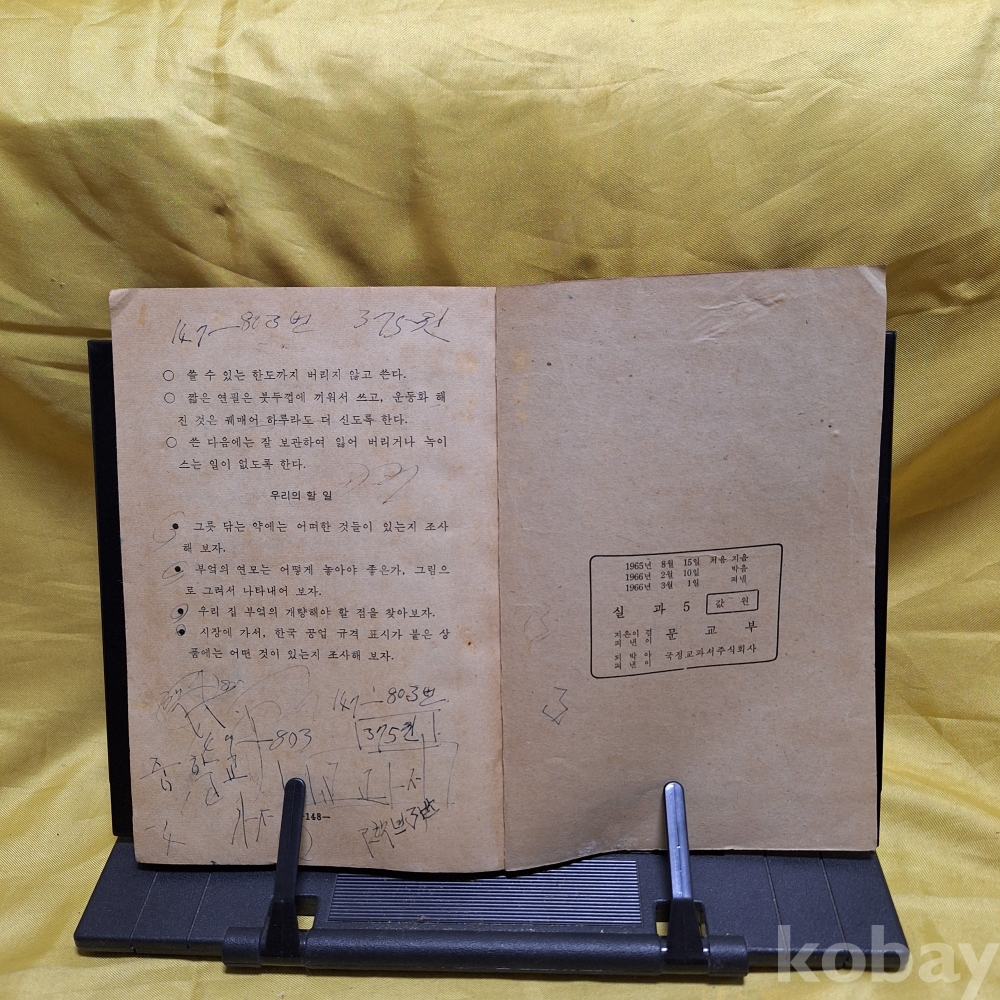 147-803번 375원
○ 쓸 수 있는 한도까지 버리지 않고 쓴다.
○ 짧은 연필은 붓두껍에 끼워서 쓰고, 운동화 해
진 것은 꿰매어 하루라도 더 신도록 한다.
○ 쓴 다음에는 잘 보관하여 잃어 버리거나 녹이
스는 일이 없도록 한다.
우리의 할 일
• 그릇 닦는 약에는 어떠한 것들이 있는지 조사
해 보자.
• 부엌의 연모는 어떻게 놓아야 좋은가, 그림으
로 그려서 나타내어 보자.
• 우리 집 부엌의 개량해야 할 점을 찾아보자.
• 시장에 가서, 한국 공업 규격 표시가 붙은 상
품에는 어떤 것이 있는지 조사해 보자.
147-803번
375원
803
중 학교
-148-
1965년 8월 15일 처음 지음
1966년 2월 10일 박음
1966년 3월 1일 펴냄
실 과 5 값 원
지은이 겸 펴낸이 문 교 부
되박아 펴낸이 국정교과서주식회사
3
kobay